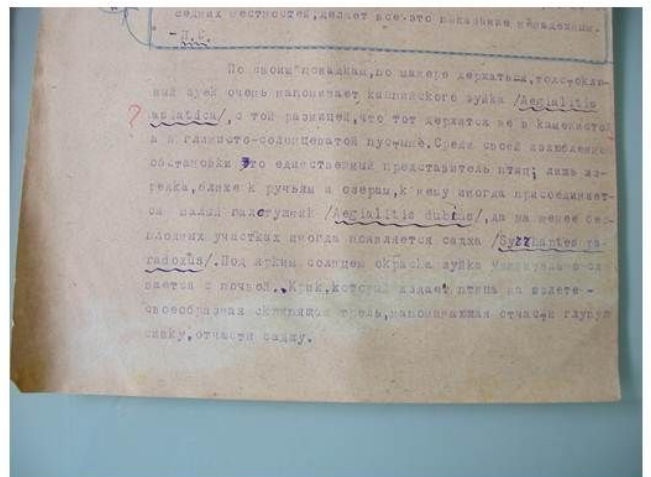 седних местностей, делает все это показание ненадежным.
- П.С.
По своим повадкам, по манере держаться, толстоклю-
вый зуек очень напоминает каспийского зуйка /Aegialitis
asiatica/, с той разницей, что тот держится не в каменистой
а в глинисто-солонцеватой пустыне. Среди своей излюбленной
обстановки это единственный представитель птиц; лишь из-
редка, ближе к ручьям и озерам, к нему иногда присоединяет-
ся малый галстушник /Aegialitis dubius/, да на менее бес-
плодных участках иногда появляется саджа /Syrrhaptes pa-
radoxus/. Под ярким солнцем окраска зуйка удивительно сли
вается с почвой. Крик, который издает птица на взлете -
своеобразная скрипящая трель, напоминающая отчасти глупую
сивку, отчасти саджу.